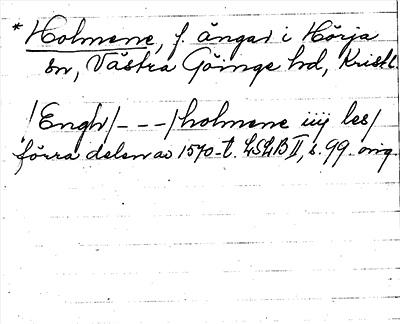 * Holmene, f. ängar i Hörja
sn, Västra Göinge hd, Krist.
/Engh/ - - - / holmene iiij les/
förra delen av 1570-t. LSLB II, s. 99. orig.